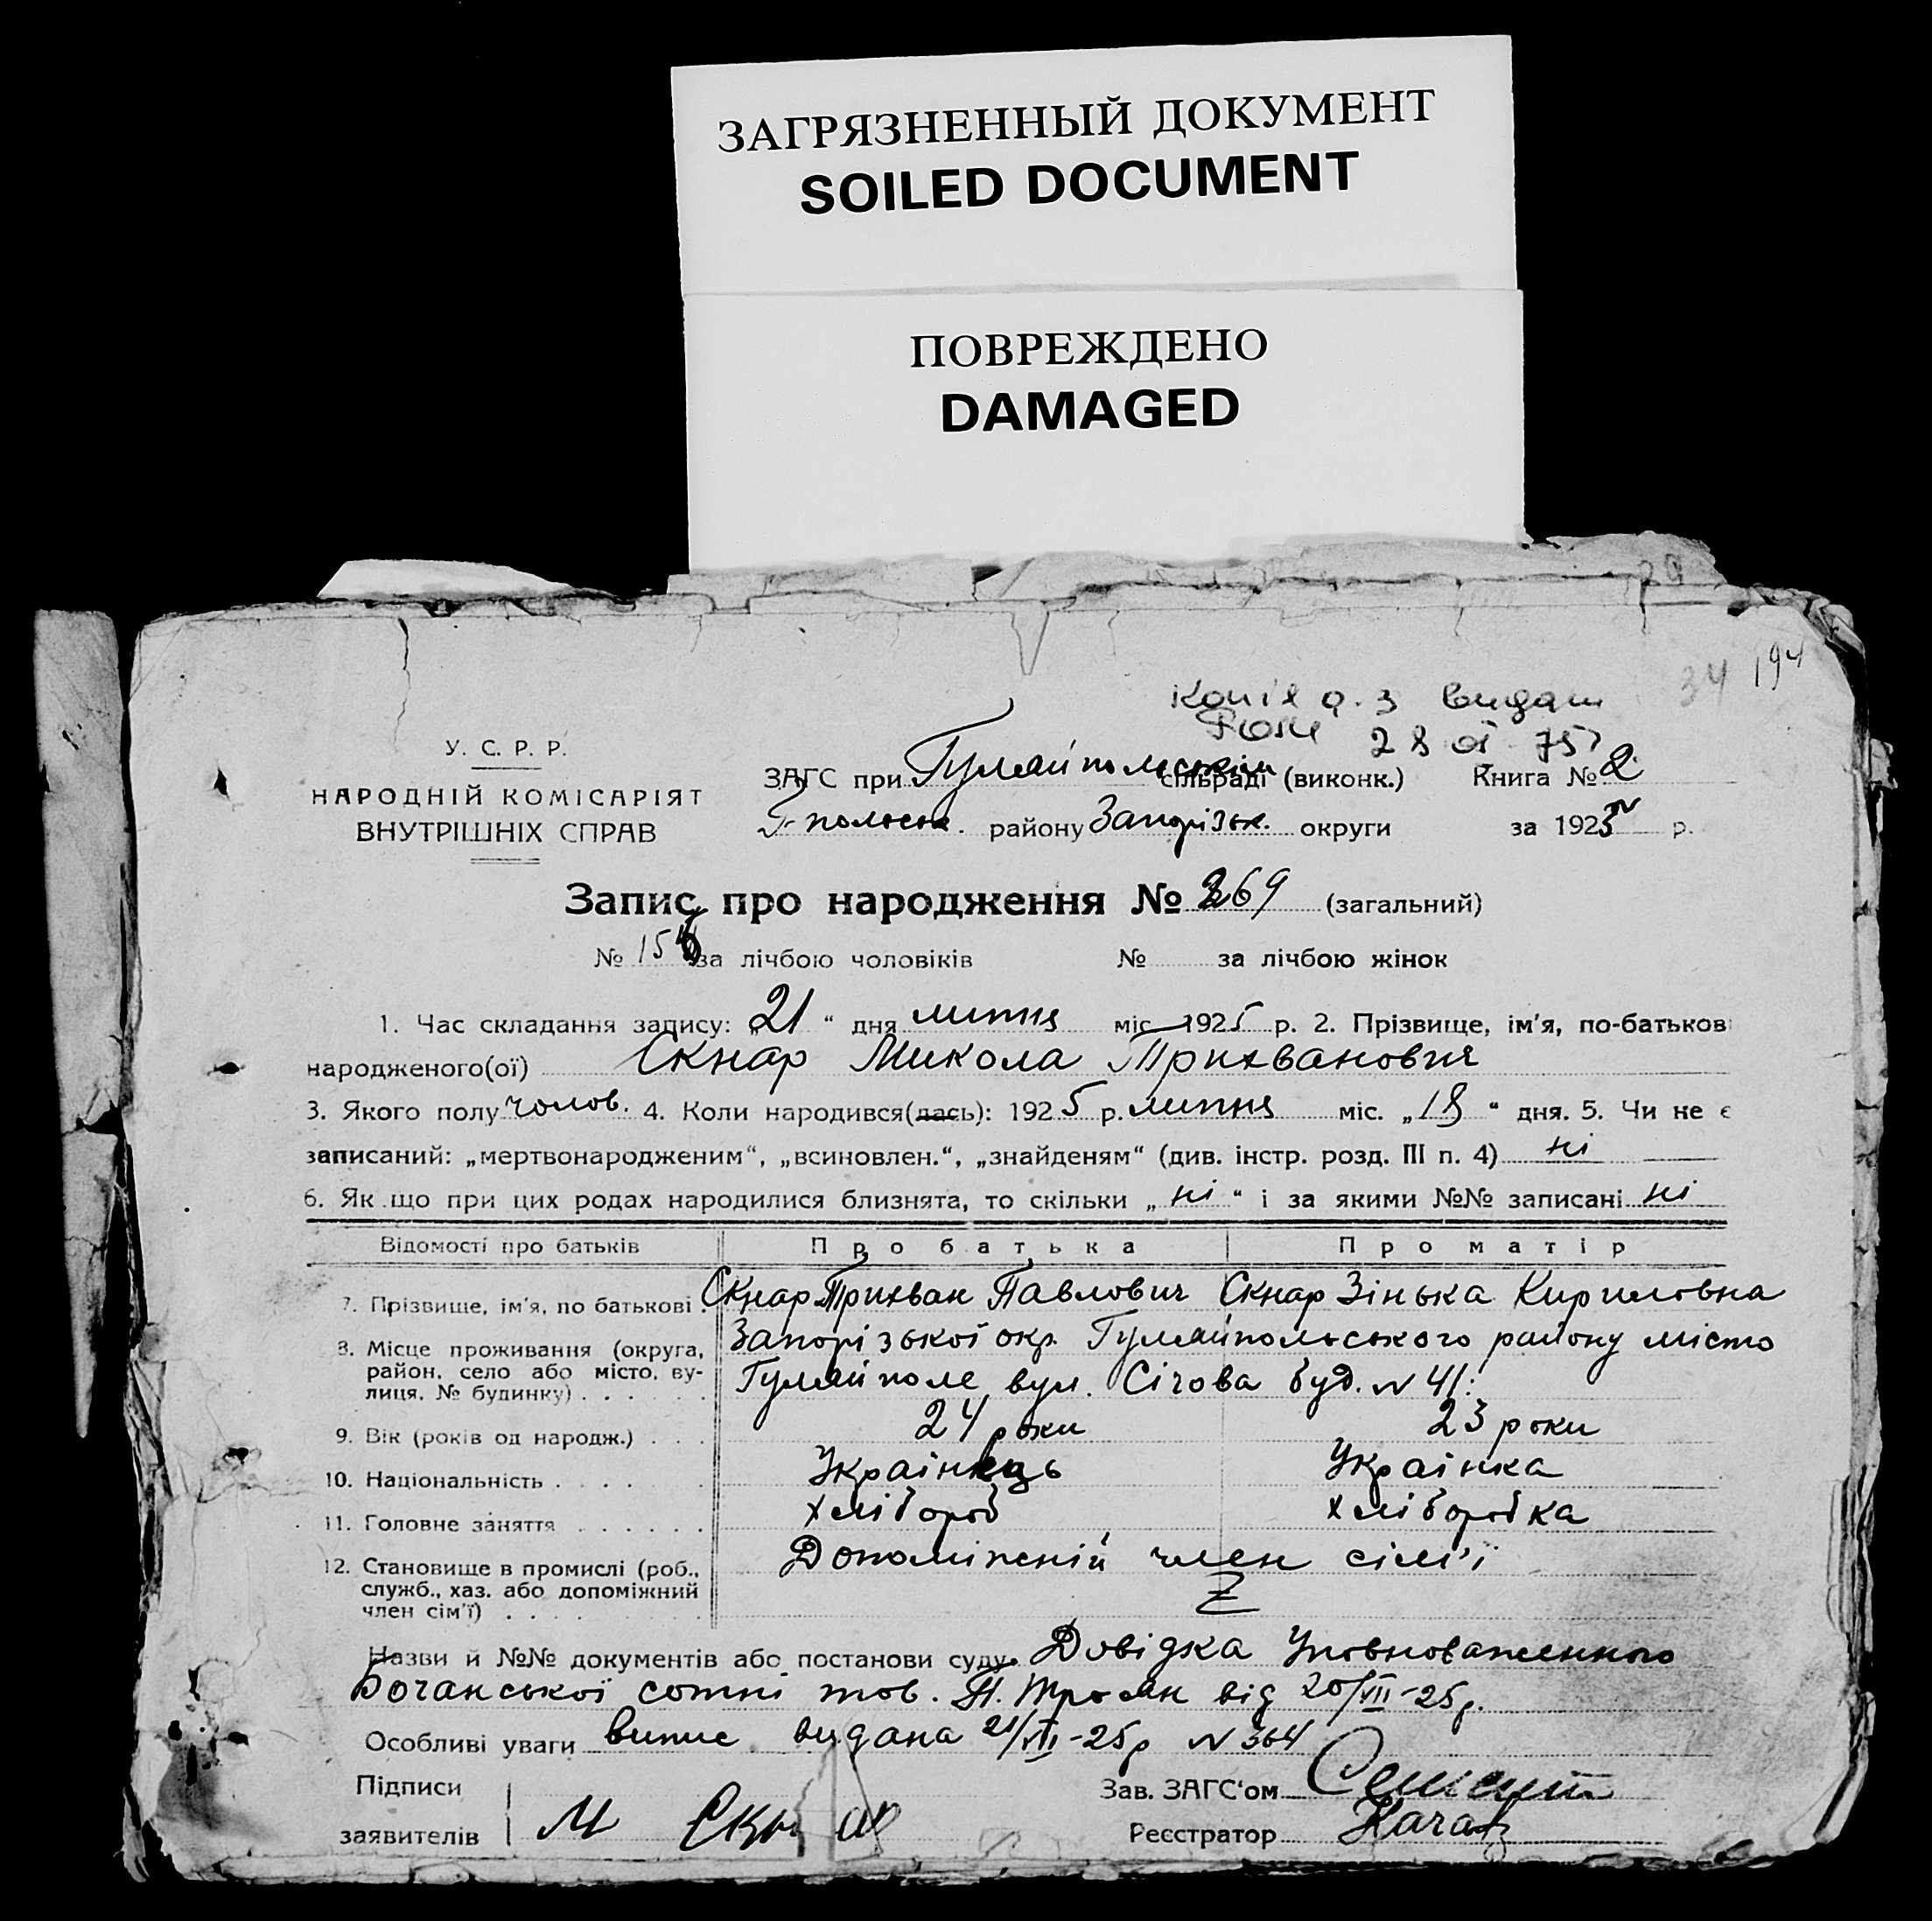 ЗАГРЯЗНЕННЫЙ ДОКУМЕНТ
SOILED DOCUMENT
ПОВРЕЖДЕНО
DAMAGED
34 194
28
У. С. Р. Р.
НАРОДНІЙ КОМІСАРІЯТ
ВНУТРІШНІХ СПРАВ
ЗАГС при Гуляйпольськім сільраді (виконк.) Книга № 2
Г-польськ. району Запорізьк. округи за 1925 р.
Запис про народження № 269 (загальний)
№ 15 за лічбою чоловіків № за лічбою жінок
1. Час складання запису: „21“ дня липня міс. 1925 р. 2. Прізвище, ім'я, по-батькові
народженого(ої) Скнар Микола Трихванович
3. Якого полу чолов. 4. Коли народився(лась): 1925 р. липня міс. „18“ дня. 5. Чи не є
записаний: „мертвонародженим“, „всиновлен.“, „знайденям“ (див. інстр. розд. III п. 4) ні
6. Як що при цих родах народилися близнята, то скільки „ні“ і за якими №№ записані ні
Відомості про батьків Про батька Про матір
7. Прізвище, ім'я, по батькові Скнар Трихван Павлович Скнар Зінька Кириловна
8. Місце проживання (округа, район, село або місто, вулиця, № будинку) Запорізької окр. Гуляйпольського району місто
Гуляйполе, вул. Січова буд. № 41.
9. Вік (років од народж.) 24 роки 23 роки
10. Національність Українець Українка
11. Головне заняття хлібороб хліборобка
12. Становище в промислі (роб., служб., хаз. або допоміжний член сім'ї) Допоміжній член сімї
Назви й №№ документів або постанови суду Довідка Уповноваженного
Бочанської сотні тов. П. Троян від 20/VII-25р.
Особливі уваги випис видана 21/VII-25р № 364
Підписи
заявителів М Скнар
Зав. ЗАГС'ом
Реєстратор